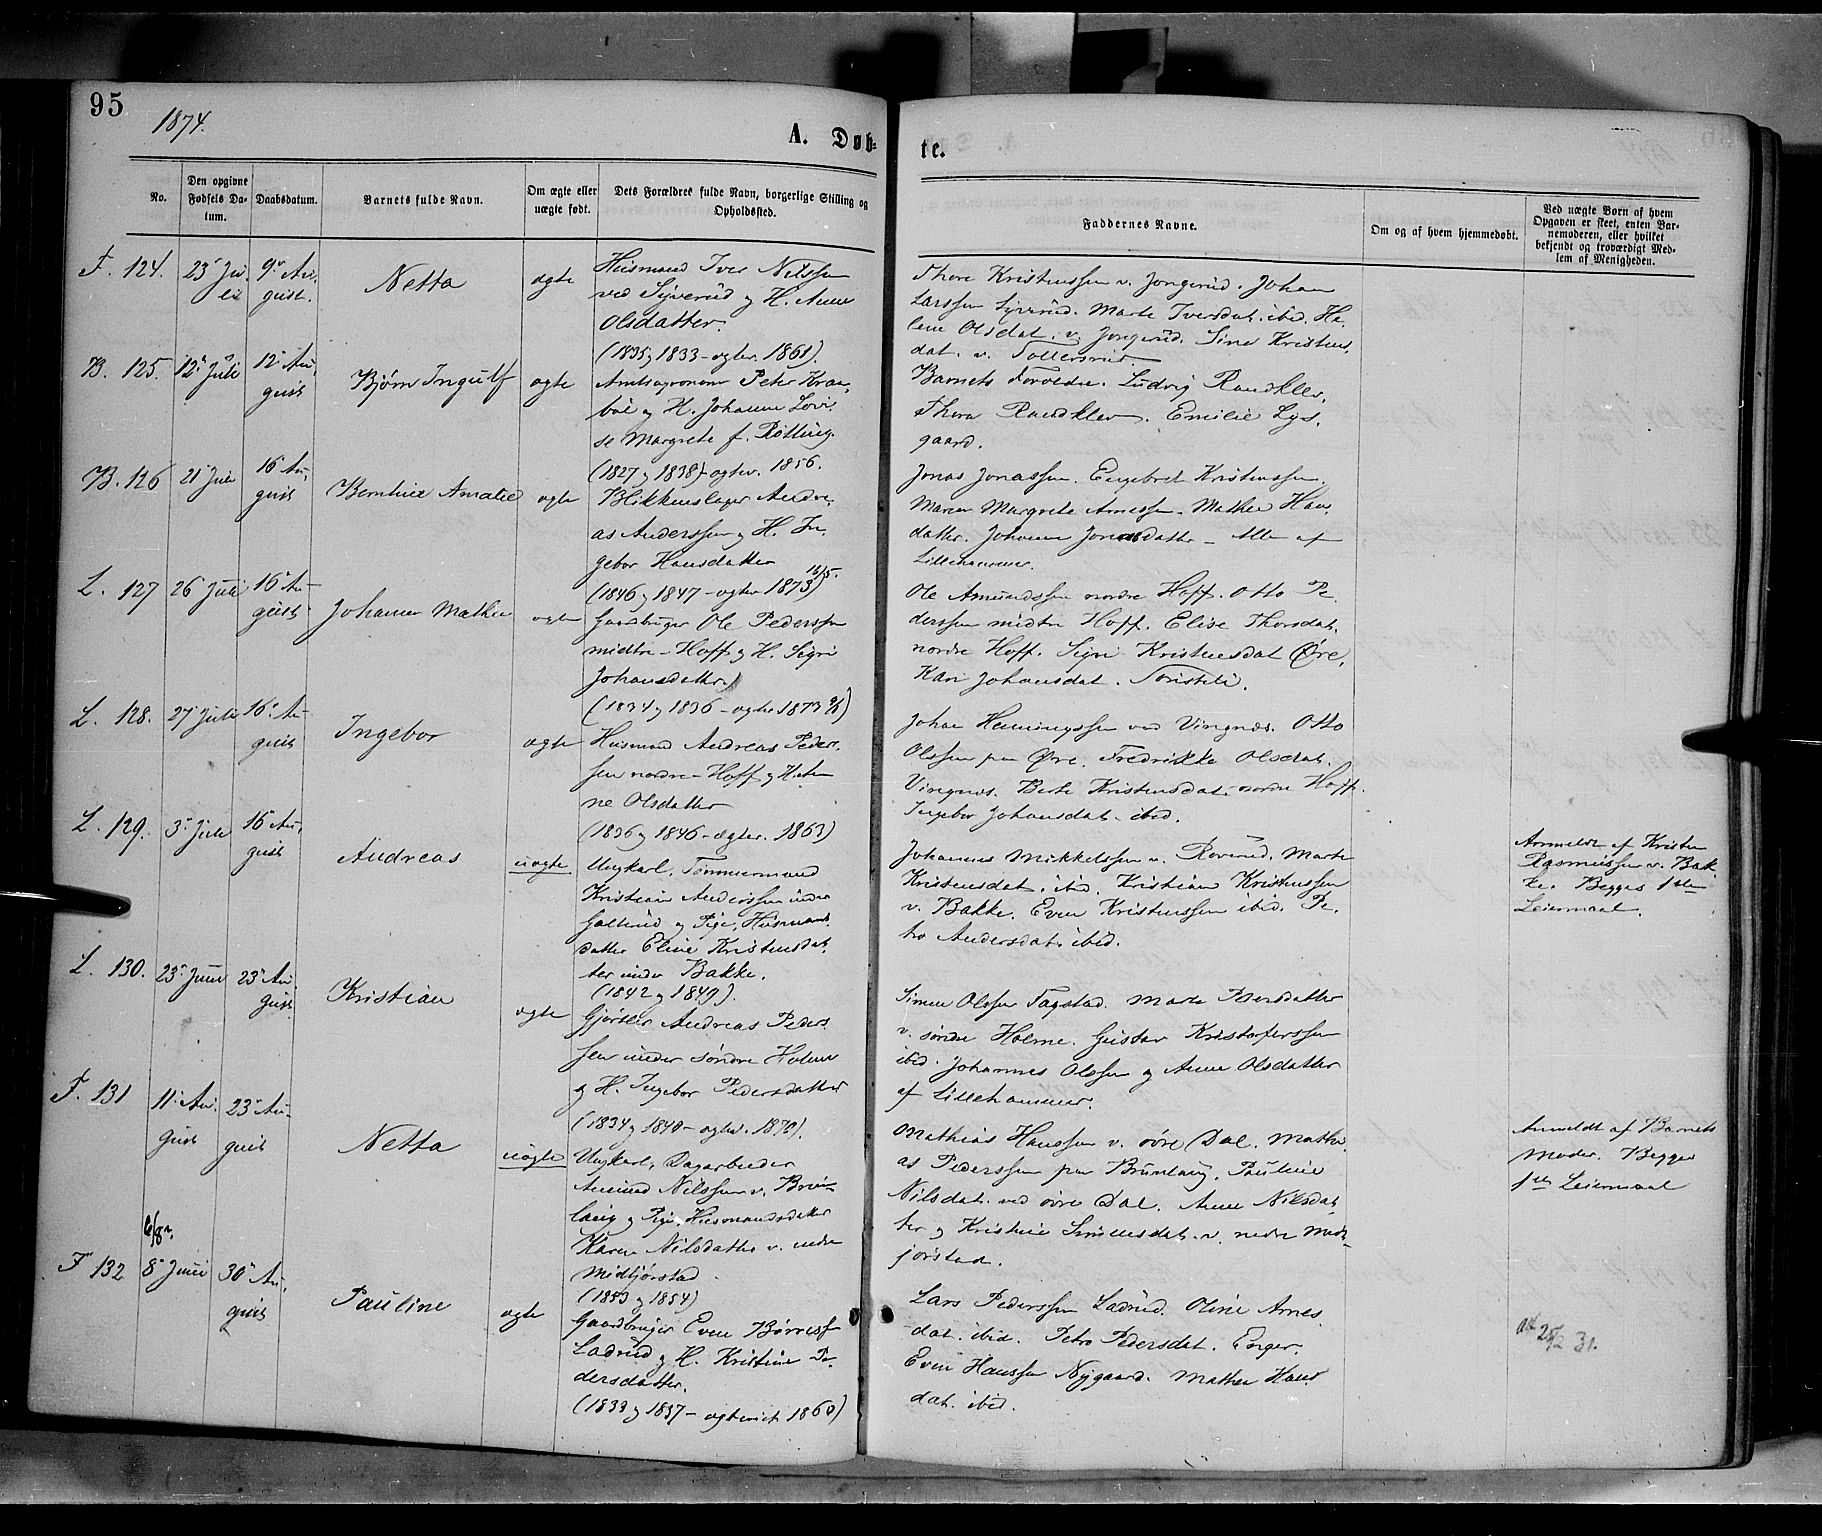 95
1874.
A. Døb-
te.
No.
Den opgivne
Fødsels Da-
tum.
Daabsdatum.
Barnets fulde Navn.
Om ægte eller
uægte født.
Dets Forældres fulde Navn, borgerlige Stilling og
Opholdssted.
Faddernes Navne.
Om og af hvem hjemmedøbt.
Ved uægte Børn af hvem
Opgaven er skeet, enten Bar-
nemoderen, eller hvilket
bekjendt og troværdigt Med-
lem af Menigheden.
F. 124.
23 Ju-
li
9 Au-
gust.
Netta
ægte
Husmand Iver Nilssen
ved Syverud og H. Anne
Olsdatter.
(1835 og 1833 - ægtev. 1861).
Thore Kristenssen v. Jongerud. Johan
Larssen Syverud. Marte Iversdat. ibid. He-
lene Olsdat. v. Jongerud. Sine Kristens-
dat. v. Tollersrud
B. 125.
12 Juli
12 Au-
gust
Bjørn Ingulf
ægte
Amtsagronom Peter Kra-
bøl og H. Johanne Lovi-
se Margrete f. Røtting.
(1827 og 1838) - ægtev. 1856.
Barnets Forældre. Ludvig Randklev.
Thora Randklev. Emilie Lys-
gaard.
B. 126
21 Juli
16 Au-
gust
Bernhine Amalie
ægte
Blikkenslager Andre-
as Anderssen og H. In-
gebor Hansdatter
(1846 og 1847 - ægtev 1873) 16/5.
Jonas Jonassen. Engebret Kristenssen.
Maren Margrete Arnessen. Mathea Hans-
datter. Johanne Jonasdatter - Alle af
Lillehammer.
L. 127
26 Juli
16 Au-
gust
Johanne Mathea
ægte
Gaardbruger Ole Pederssen
midtre-Hoff og H. Sigri
Johansdatter
(1834 og 1836 - ægtev 1873)
Ole Amundssen nordre Hoff. Otto Pe-
derssen midtre Hoff. Elise Thorsdat.
nordre Hoff. Sigri Kristensdat Øre,
Kari Johansdat.
L. 128.
27 Juli
16 Au-
gust
Ingebor
ægte
Husmand Andreas Peder-
sen nordre-Hoff og H. An-
ne Olsdatter
(1836 og 1846 - ægtev. 1863)
Johan Hemingssen ved Vingnæs. Otto
Olssen paa Øre. Fredrikke Olsdat.
Vingnes. Berte Kristensdat. nordre Hoff.
Ingebor Johansdat. ibid.
L. 129.
3 Juli
16 Au-
gust
Andreas
uægte
Ungkarl, Tømmermand
Kristian Anderssen under
og Pige, Husmands-
datter Eline Kristensdat-
ter under Bakke.
(1842 og 1849).
Johannes Mikkelssen v. Roverud. Marte
Kristensdat. ibid. Kristian Kristenssen
v. Bakke. Even Kristenssen ibid. Pe-
tro Andersdat. ibid.
Anmeldt af Kristen
Rasmussen v. Bak-
ke. Begges 1ste
Leiermaal.
L. 130.
23 Juni
23 Au-
gust
Kristian
ægte
Gjørtler Andreas Peders-
sen under søndre Holme
og H. Ingebor Pedersdatter
(1834 og 1840 - ægtev. 1870).
Simen Olssen Fagstad. Marte Pedersdatter
v. søndre Holme. Gustav Kristoferssen
ibid. Johannes Olssen og Anne Olsdatter
af Lillehammer.
F. 131
11 Au-
gust
23 Au-
gust
Netta
uægte
Ungkarl, Dagarbeider
Amund Nilssen v. Brun-
laug og Pige, Husmandsdatter
Karen Nilsdatter v. nedre
Midtjørstad
(1853 og 1854)
Mathias Hanssen v. øvre Dal. Mathi-
as Pederssen paa Brunlaug. Pauline
Nilsdat. ved øvre Dal. Anne Nilsdat-
ter og Kristine Simensdat. v. nedre Midt-
jørstad.
Anmeldt af Barnets
Moder. Begges
1ste Leiermaal
F. 132
8 Juni
30 Au-
gust
Pauline
ægte
Gaardbruger Even Børress.
Ladrud og H. Kristine Pe-
dersdatter.
(1833 og 1837 - ægteviet 1860)
Lars Pederssen Ladrud. Oline Arnes-
dat. ibid. Petro Pedersdat. Enger.
Even Hanssen Nygaard. Mathea Hans-
dat. ibid.